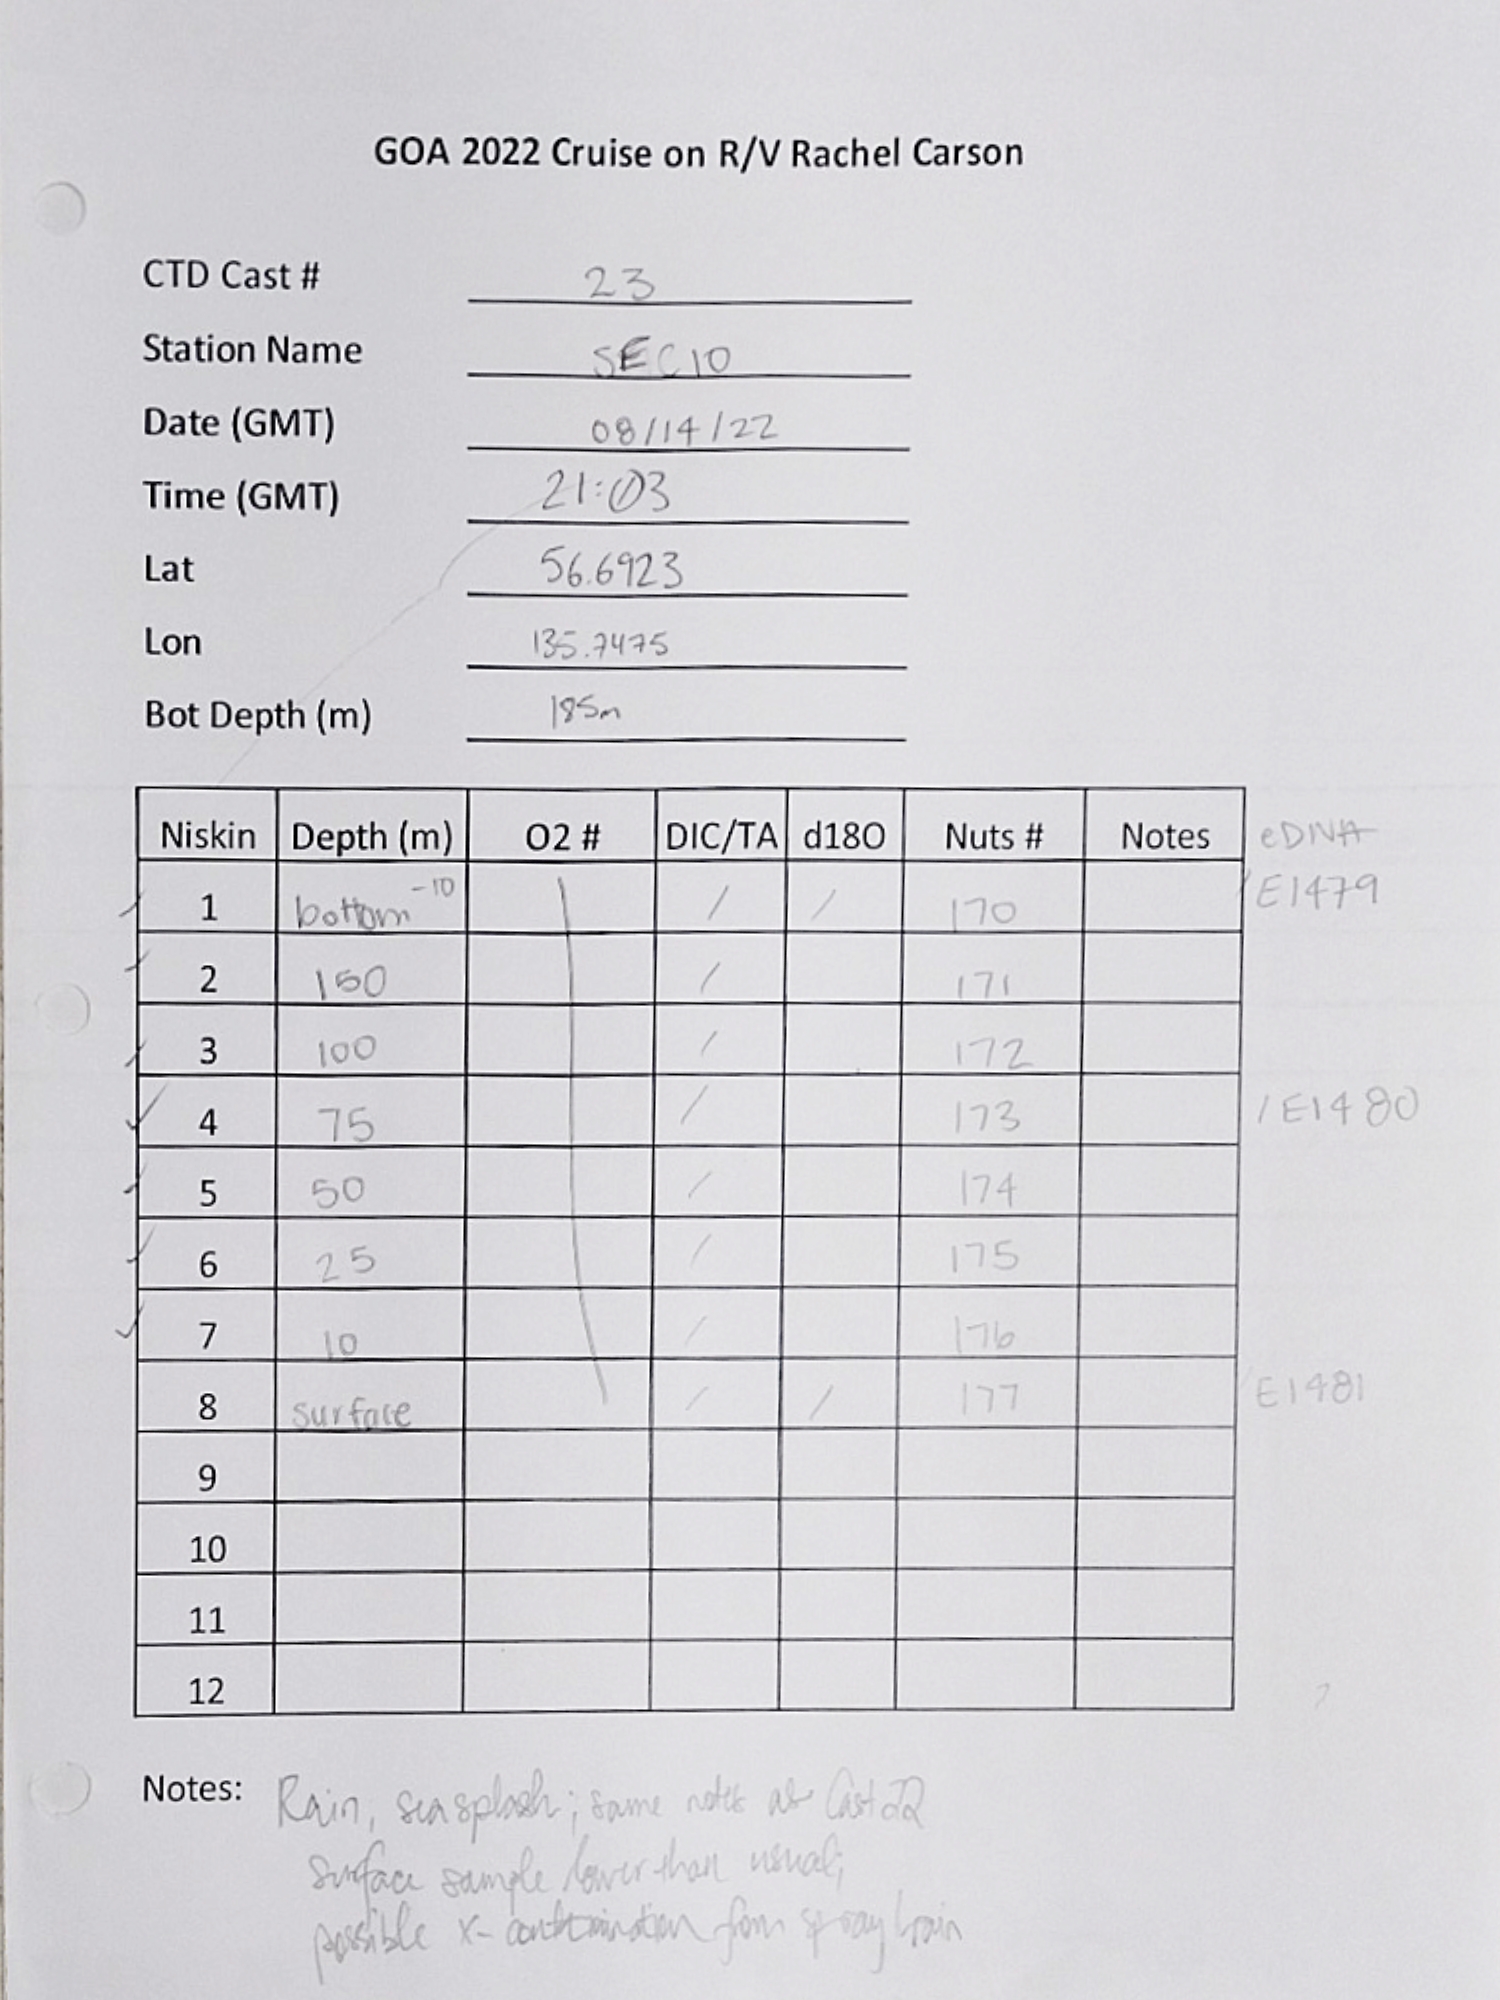 GOA 2022 Cruise on R/V Rachel Carson
CTD Cast # 23
Station Name SEC10
Date (GMT) 08/14/22
Time (GMT) 21:03
Lat 56.6923
Lon 135.7475
Bot Depth (m) 185m
Niskin Depth (m) O2 # DIC/TA d18O Nuts # Notes eDNA
✓ 1 bottom -10 / / 170 / E1479
✓ 2 150 / 171
✓ 3 100 / 172
✓ 4 75 / 173 / E1480
✓ 5 50 / 174
✓ 6 25 / 175
✓ 7 10 / 176
8 surface / / 177 / E1481
9
10
11
12
Notes: Rain, sea splash; same notes as Cast 22
surface sample lower than usual;
possible x-contamination from spray/rain